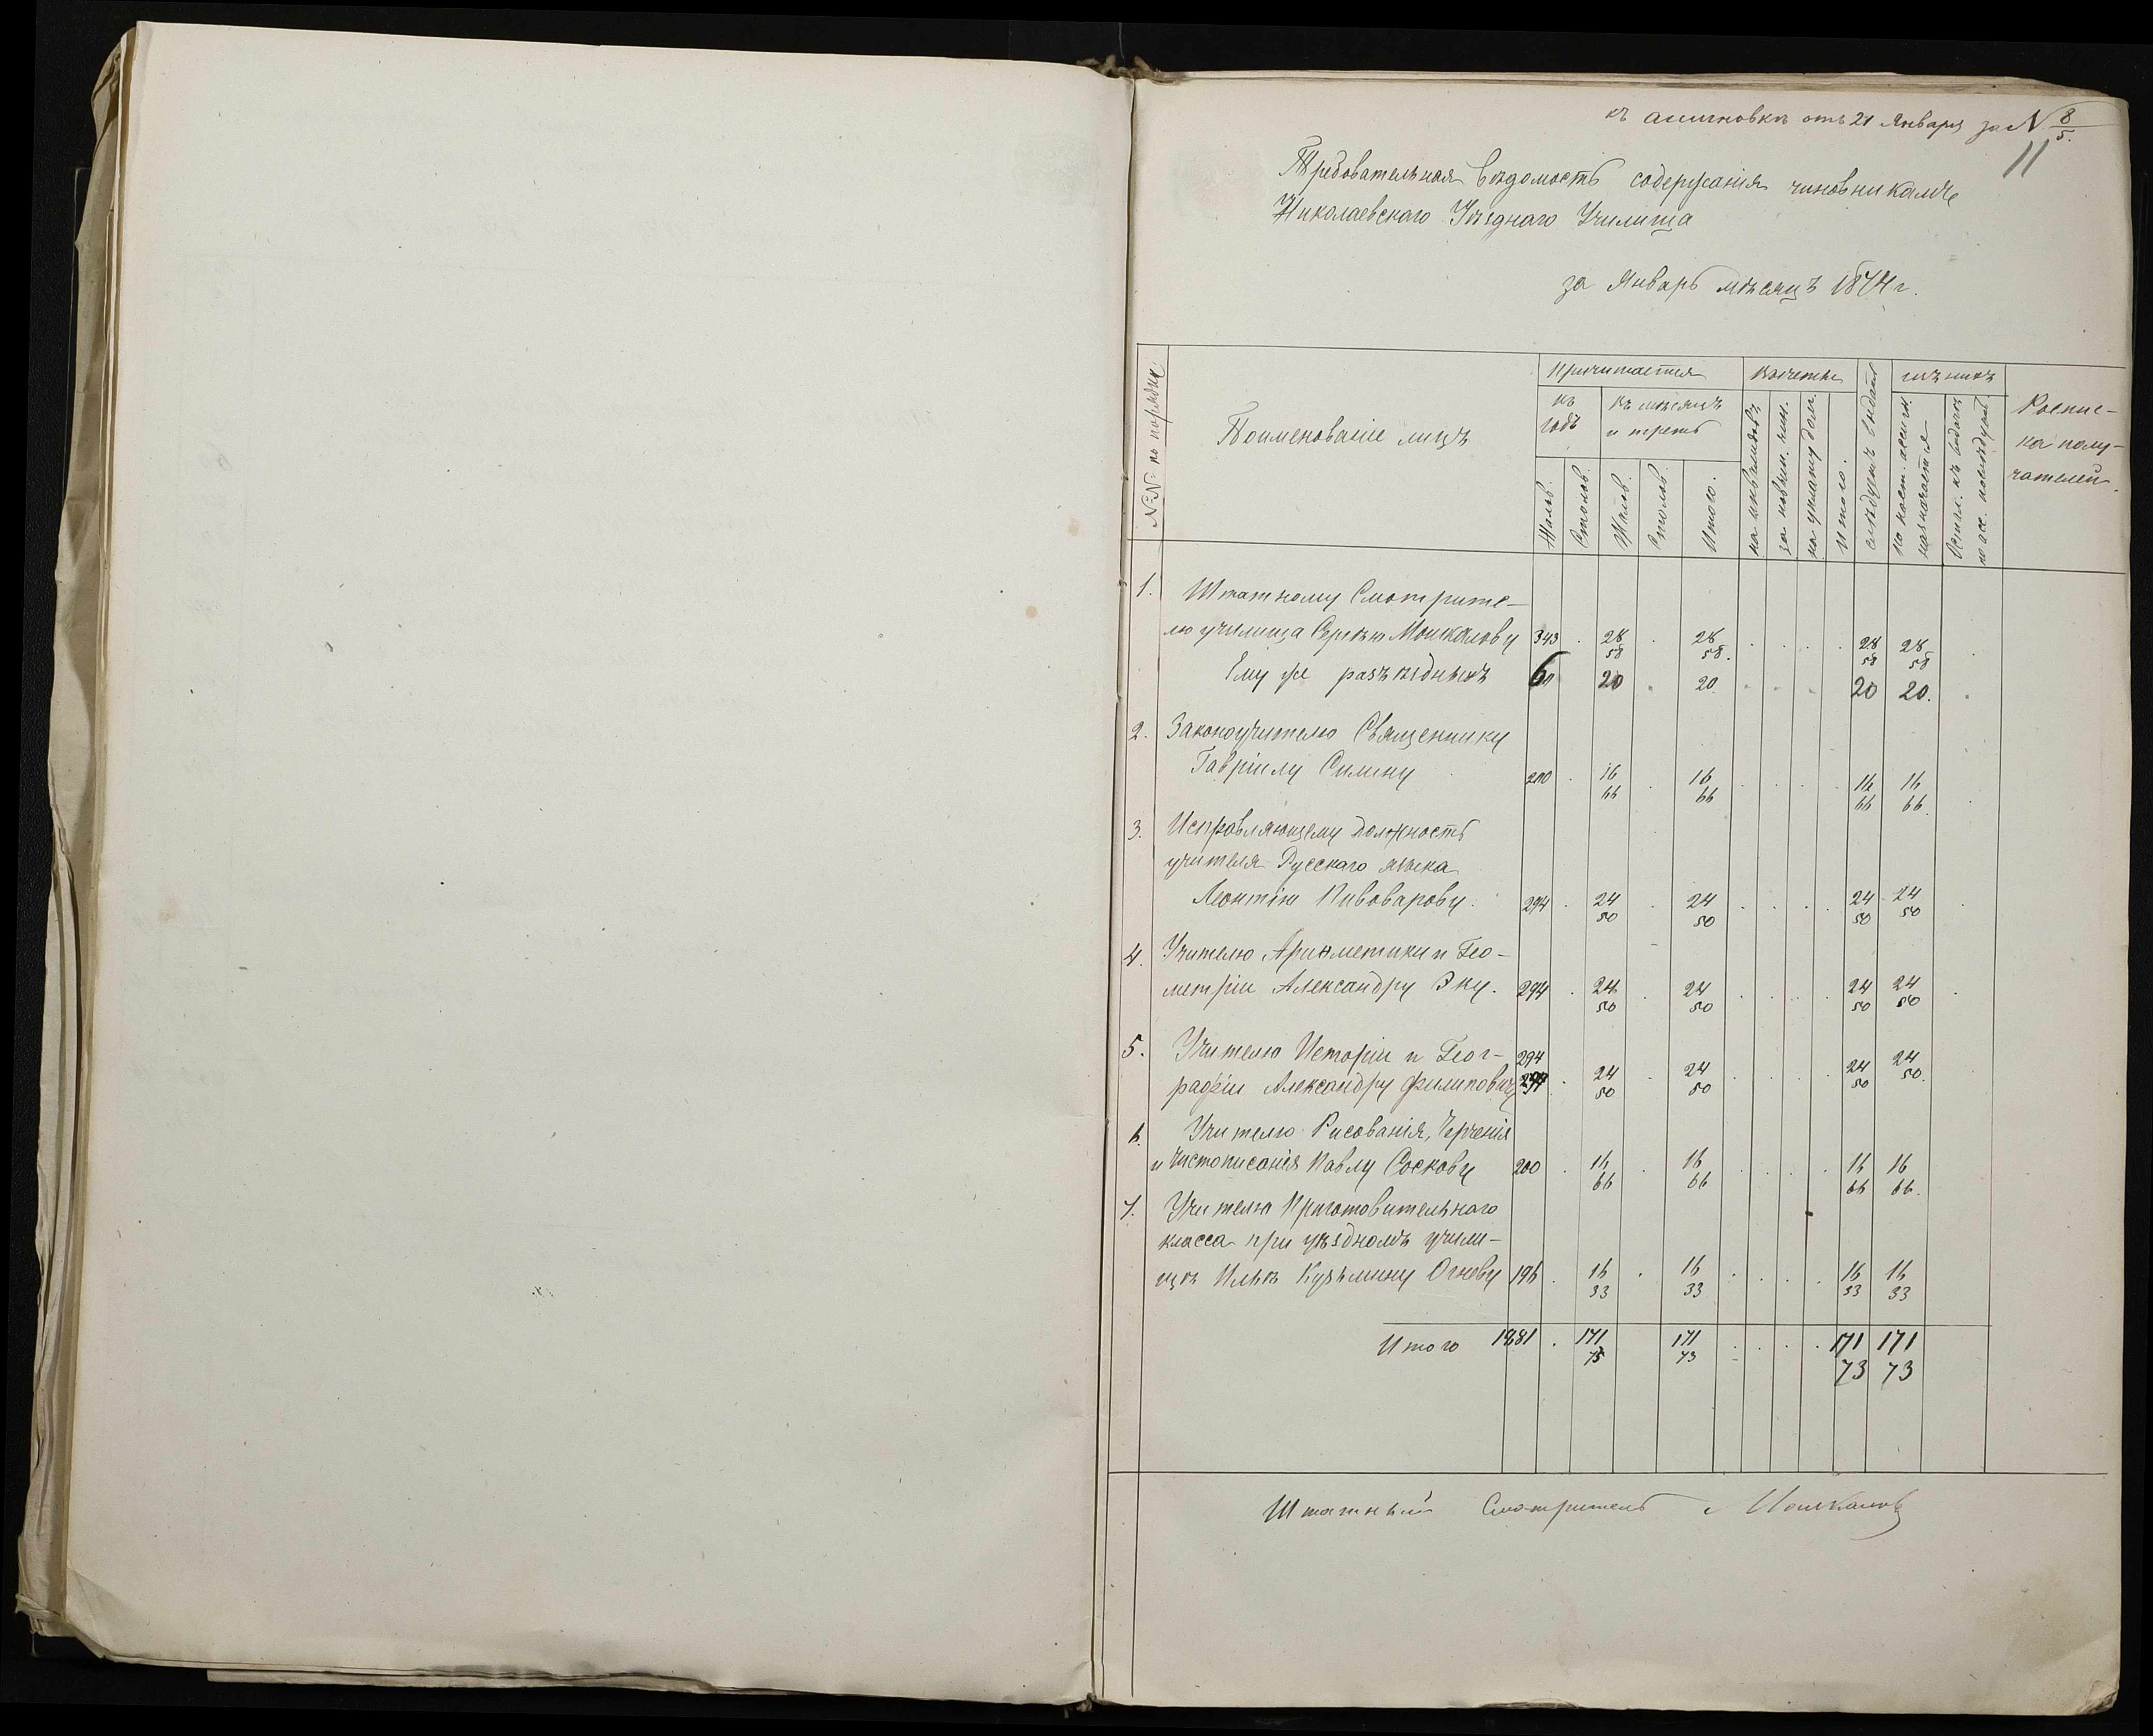 къ ассигновкѣ отъ 21 Января за № 8/5.
11
Требовательная вѣдомость содержанія чиновникамъ
Николаевскаго Уѣзднаго Училища
за Январь мѣсяцъ 1874 г.
№№ по порядку
Поименованіе лицъ
Причитается
въ годъ
въ мѣсяцъ и треть
Жалов.
Столов.
Жалов.
Столов.
Итого.
Вычеты
на инвалидовъ
за повыш. чин.
на уплату долга
Итого.
слѣдуетъ выдать
изъ нихъ
по наст. ассигн. назначается
Остал. къ выдачѣ по асс. послѣдующ.
Роспис-
ка полу-
чателей.
1. Штатному Смотрите-
лю училища Сергѣю Мошкалову 343 . 28 58 . 28 58. . . . . 28 58 28 58 .
Ему же разъѣздныхъ 60 20 . 20 . . . 20 20. .
2. Законоучителю Священнику
Гавріилу Силину 200 . 16 66 . 16 66 . . . . 16 66 16 66. .
3. Исправляющему должность
учителя Русскаго языка
Леонтію Пивоварову. 294 . 24 50 . 24 50 . . . . 24 50 24 50 .
4. Учителю Ариѳметики и Гео-
метріи Александру Эку. 294 . 24 50 . 24 50 . . . . 24 50 24 50 .
5. Учителю Исторіи и Геог- 294
рафіи Александру Филиповичу 294 . 24 50 . 24 50 . . . . 24 50 24 50.
6. Учителю Рисованія, Черченія
и Чистописанія Павлу Соскову 200 . 16 66 . 16 66 . . . . 16 66 16 66.
7. Учителю Приготовительнаго
класса при уѣздномъ учили-
щѣ Ильѣ Кузьмину Огневу 196 . 16 33 . 16 33 . . . . 16 33 16 33
Итого 1881 . 171 73 171 73 . . . . 171 73 171 73
Штатный Смотритель С Мошкалов